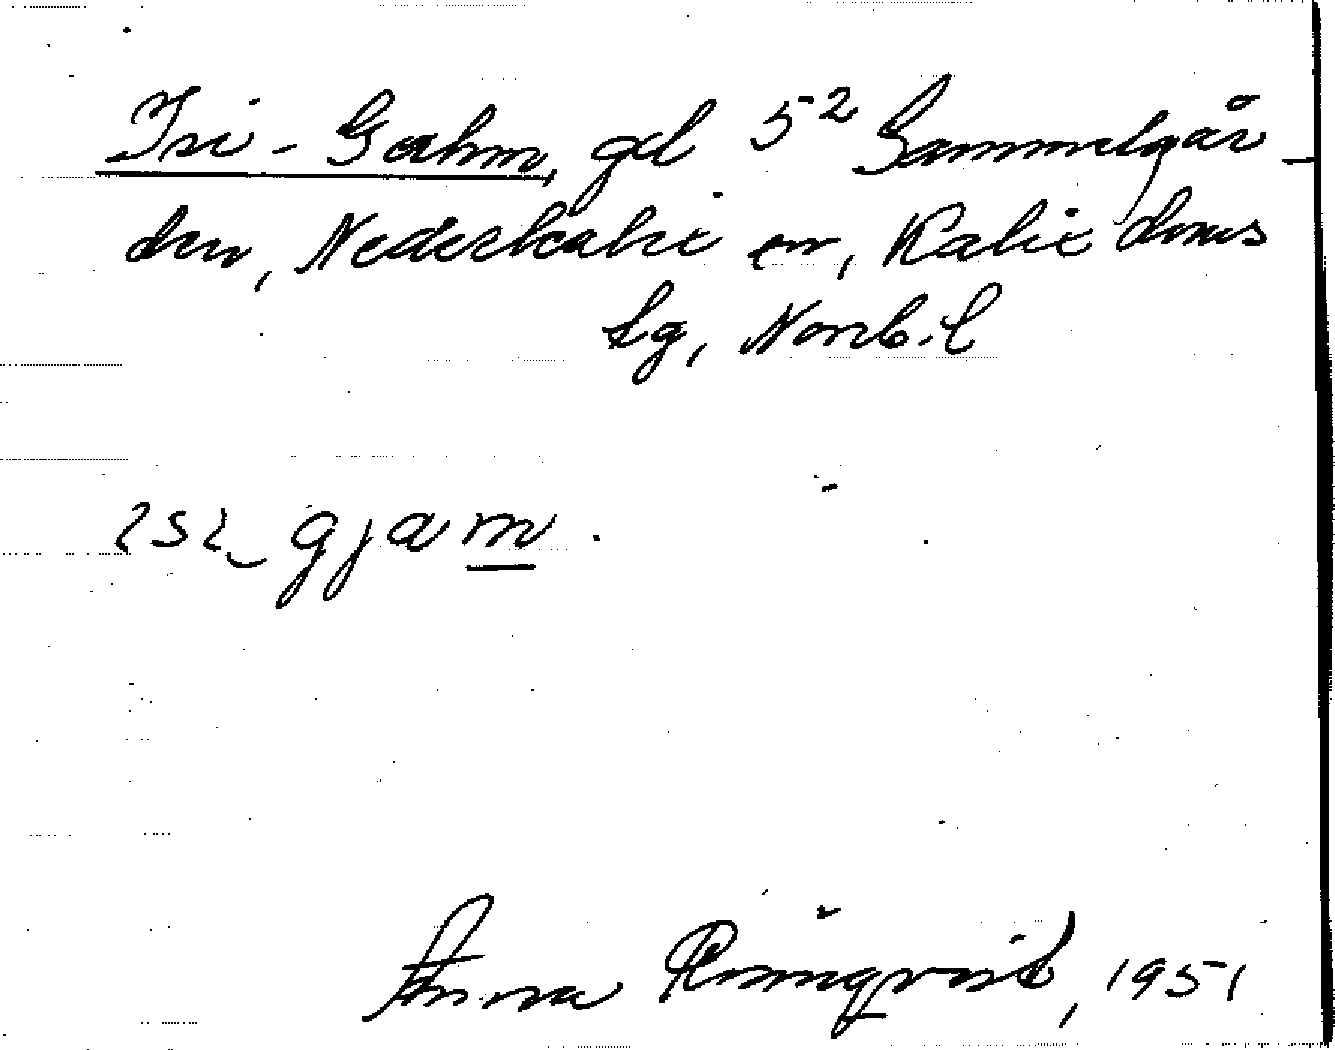 Isi-Gahm, gd 5² Gammelgår-
den, Nederkalix sn, Kalix doms
lg, Norrb. l
gjam.
Anna Rönqvist, 1951